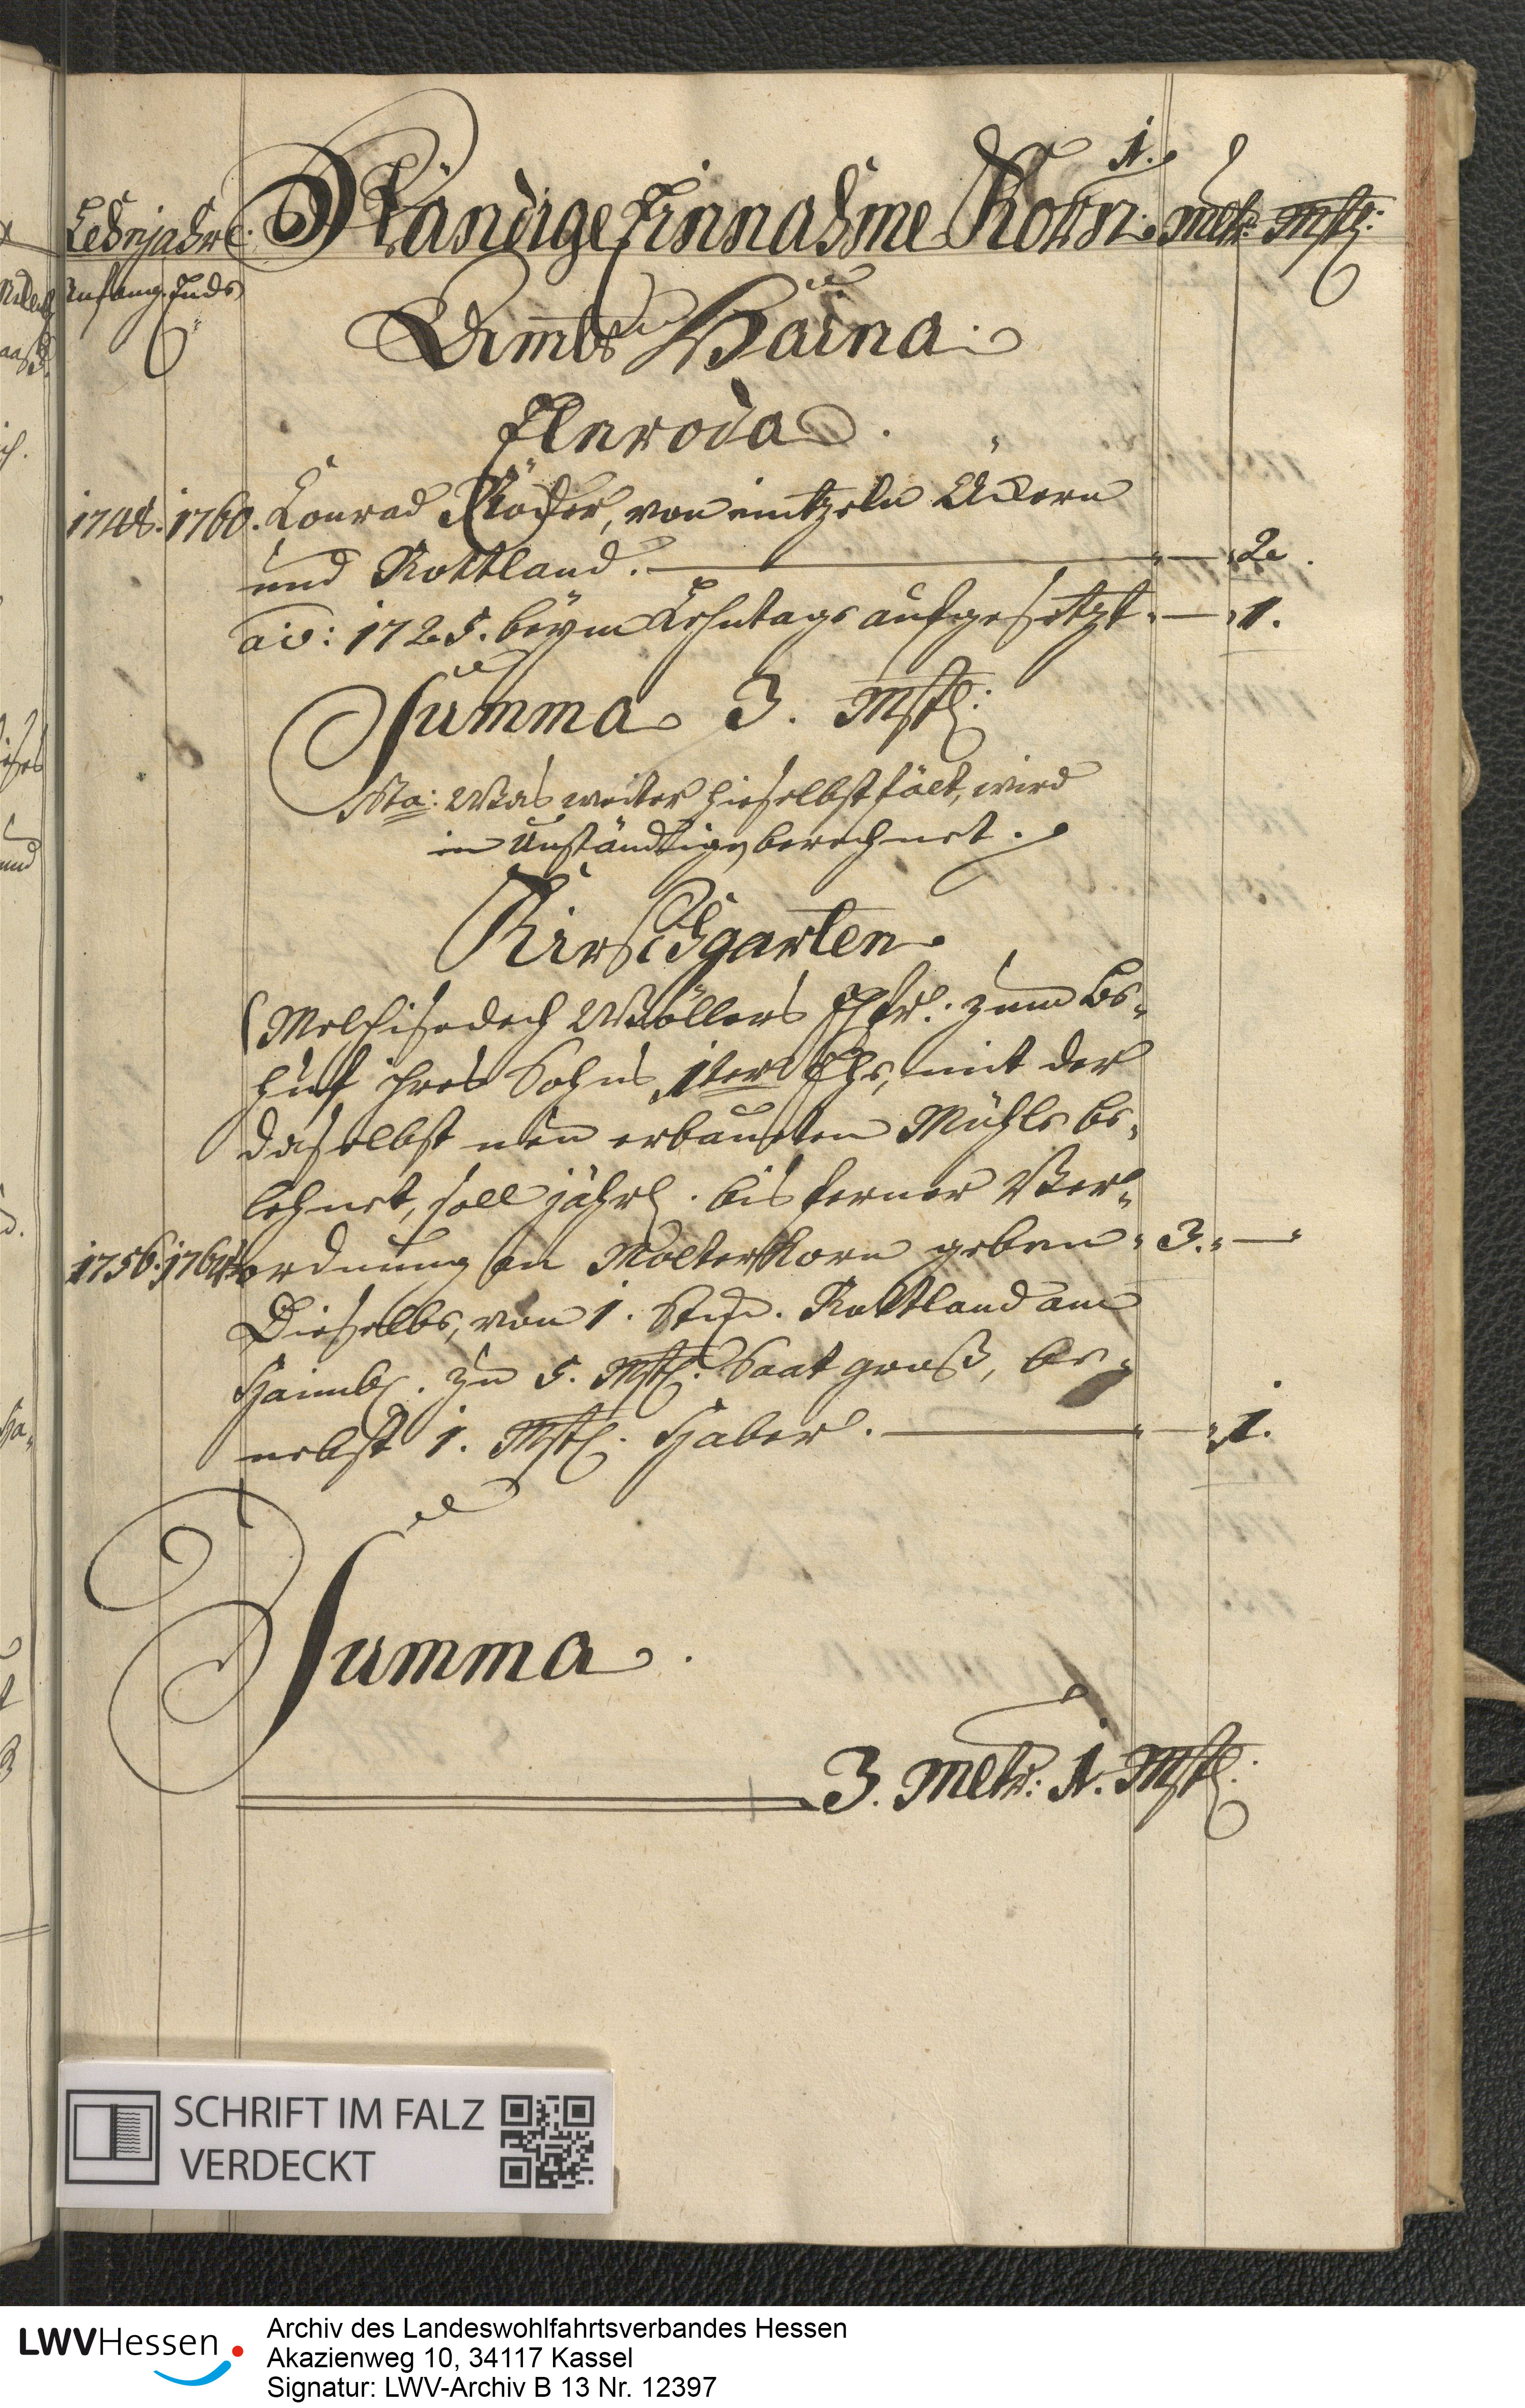 1.
Lehnjahre. Ständige Einnahme Korn. Mltr. Mstl:
Anfang. Ende
Ammts Haina.
Ellnroda.
1748. 1760. Conrad Röder, von eintzeln Äckern
und Rottland. — 2.
aō: 1725. beym Lehntage aufgesetzt. — 1.
Summa 3. Mstl:
Nta: Was weiter hieselbst fält, wird
in Unständig berechnet.
Kirschgarten.
Melchisedech Möllers Ehfr: zum Be-
huf ihres Sohns 1ter Ehe, mit der
daselbst neu erbaueten Mühle be-
lehnet, soll jährl. bis ferner Ver-
1756. 1764. ordnung an Molterkorn geben 3. —
Dieselbe, von 1. Stück Rottland am
Hainb. zu 5. Mstl: Saat groß,
nebst 1. Mstl: Haber. — 1.
Summa.
3. Mltr: 1. Mstl:
SCHRIFT IM FALZ
VERDECKT
LWVHessen
Archiv des Landeswohlfahrtsverbandes Hessen
Akazienweg 10, 34117 Kassel
Signatur: LWV-Archiv B 13 Nr. 12397